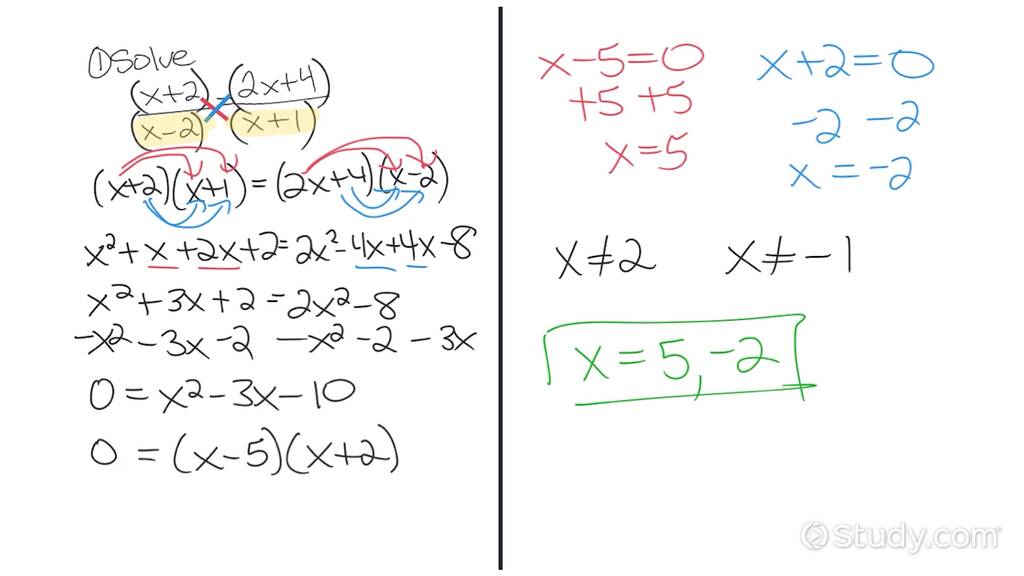 ① Solve
(x+2) = (2x+4)
(x-2) (x+1)
(x+2)(x+1) = (2x+4)(x-2)
x² + x + 2x + 2 = 2x² - 4x + 4x - 8
x² + 3x + 2 = 2x² - 8
-x² - 3x - 2 -x² - 2 - 3x
0 = x² - 3x - 10
0 = (x-5)(x+2)
x-5=0
+5 +5
x=5
x+2=0
-2 -2
x = -2
x≠2 x≠-1
x = 5, -2
Study.com